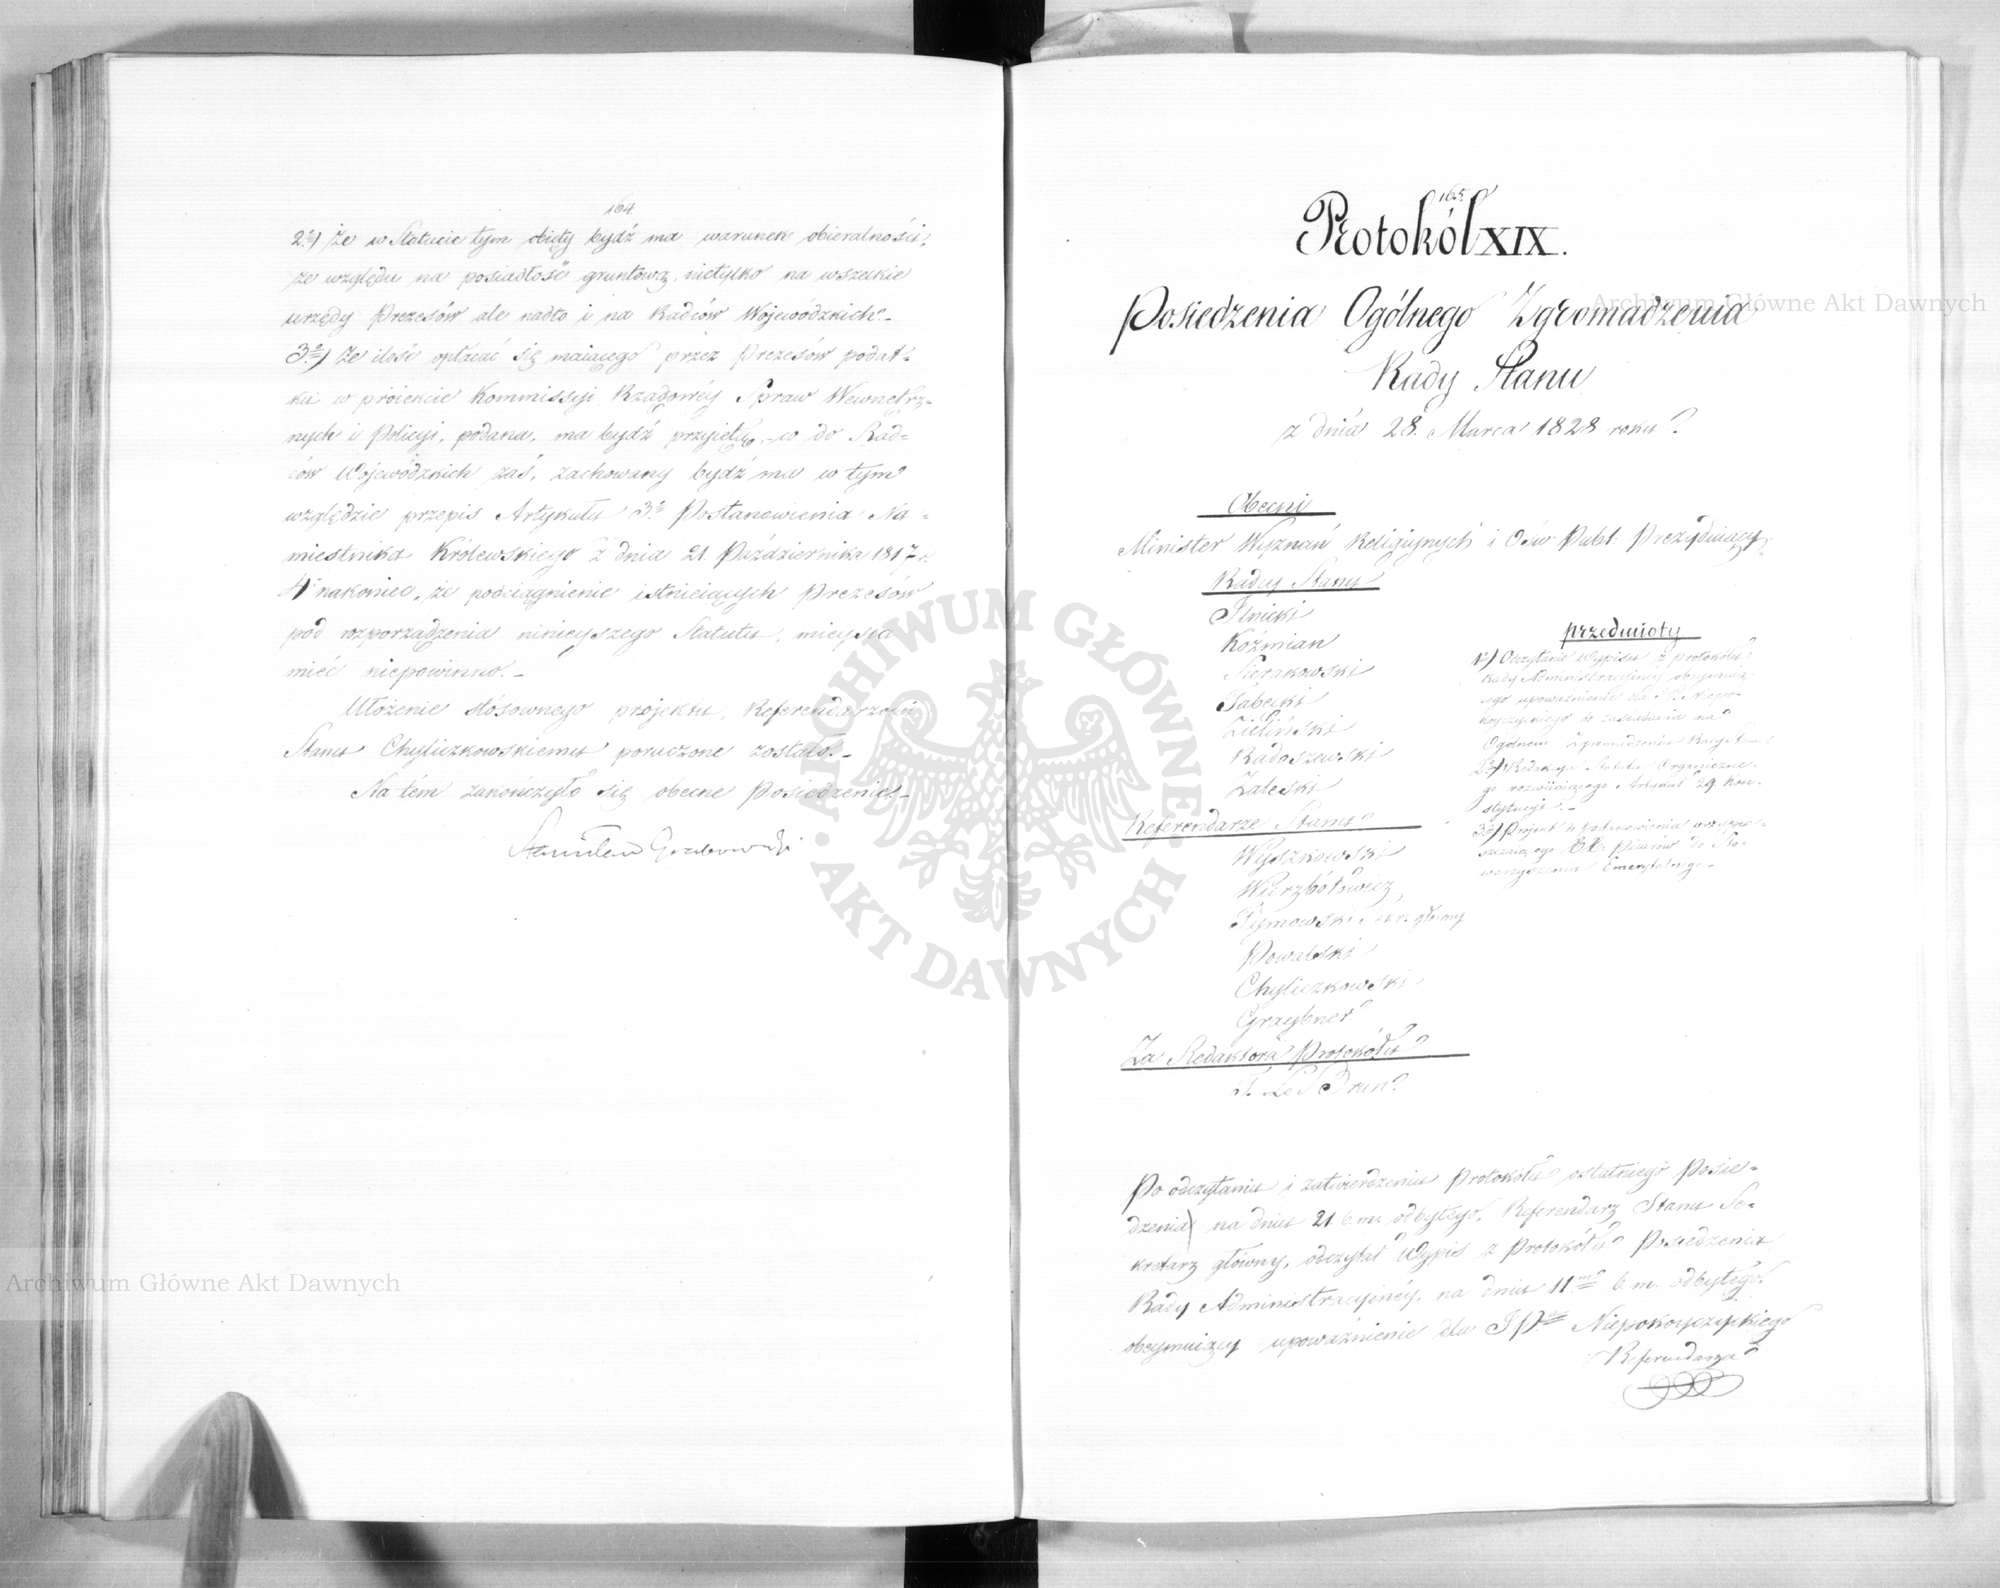 164.
2e) Że w Statucie tym obięty bydź ma warunek obieralności,
ze względu na posiadłość gruntową, nietylko na wszelkie
urzędy Prezesów ale nadto i na Radców Wojewódzkich.
3e) Że ilość opłacać się maiącego przez Prezesów podat-
ku w proiekcie Kommissyi Rządowéy Spraw Wewnętrz-
nych i Policyi, podana, ma bydź przyięta, - co do Rad-
ców Wojewódzkich zaś, zachowany bydź ma w tym
względzie przepis Artykułu 3o Postanowienia Na-
miestnika Królewskiego z dnia 21 Października 1817 r.
4e nakoniec, że podciągnienie istnieiących Prezesów
pod rozporządzenia ninieyszego Statutu, mieysca
mieć niepowinno. -
Ułożenie stósownego projektu, Referendarzowi
Stanu Chyliczkowskiemu poruczone zostało. -
Na tém zakończyło się obecne Posiedzenie. -
Stanisław Grabowski
165.
Protokół XIX.
Posiedzenia Ogólnego Zgromadzenia
Rady Stanu
z dnia 28. Marca 1828 roku
Obecni
Minister Wyznań Religijnych i Ośw: Publ: Prezyduiący.
Radcy Stanu
Ilnicki
Koźmian
Sierakowski
Sabecki
Zieliński
Radoszewski
Zaleski
Referendarze Stanu
Wyszkowski
Wierzbołowicz
Tymowski Sekr: główny
Powalski
Chyliczkowski
Graybner
Za Redaktora Protokółu
F. Le Brun
Przedmioty
1e) Odczytanie Wypisu z protokółu
Rady Administracyjnej obeymuią-
cego upoważnienie dla Niepo-
koyczyckiego do zasiadania na
Ogólném Zgromadzeniu Rady Stanu
2e) Redakcya Statutu Organiczne-
go rozwiiaiącego Artykuł 29. Kon-
stytucyi. -
3e) Projekt do postanowienia
XX: Piiarów do Sto-
warzyszenia Emerytalnego. -
Po odczytaniu i zatwierdzeniu Protokółu ostatniego Posie-
dzenia na dniu 21. b. m. odbytego, Referendarz Stanu Se-
kretarz główny, odczytał Wypis z Protokółu Posiedzenia
Rady Administracyjnéy, na dniu 11m b. m. odbytego,
obeymuiący upoważnienie dla Niepokoyczyckiego
Referendarza
Archiwum Główne Akt Dawnych
Archiwum Główne Akt Dawnych
ARCHIWUM GŁÓWNE • AKT DAWNYCH •